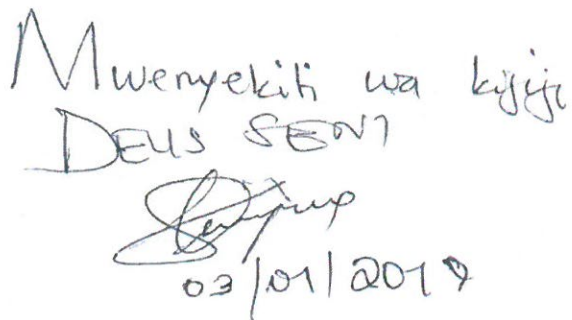 Mwenyekiti wa kijiji
DEUS SENI
03/01/2019